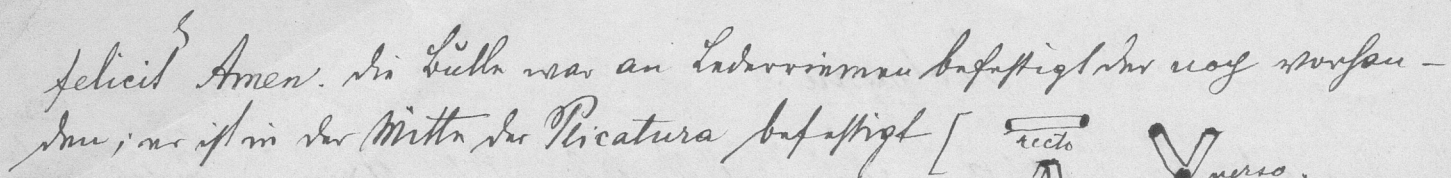 felicit Amen. Die Bulle war an Lederriemen befestigt der noch vorhan-
den; er ist in der Mitte der Plicatura befestigt [ recto verso.